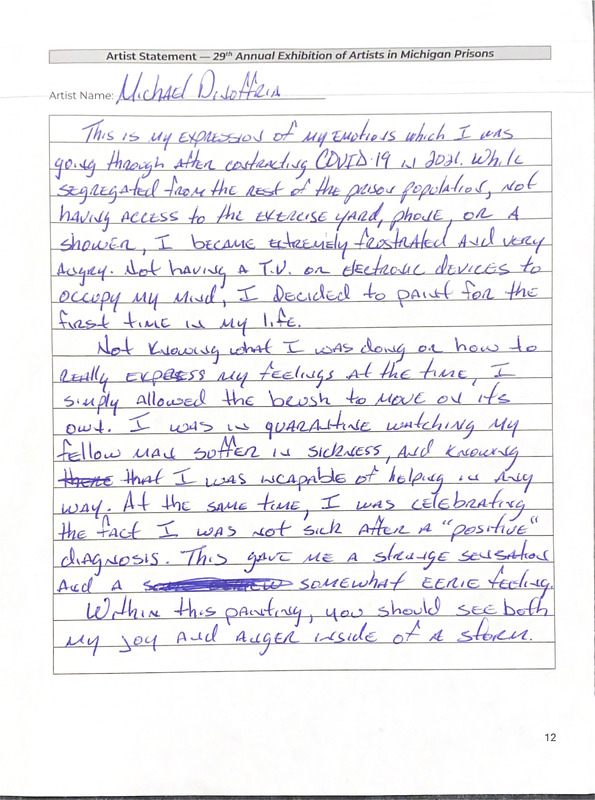 Artist Statement — 29th Annual Exhibition of Artists in Michigan Prisons
Artist Name: Michael
This is my expression of my emotions which I was
going through after contracting COVID-19 in 2021. While
segregated from the rest of the prison population, not
having access to the exercise yard, phone, or a
shower, I became extremely frustrated and very
angry. Not having a T.V. or electronic devices to
occupy my mind, I decided to paint for the
first time in my life.
Not knowing what I was doing or how to
really express my feelings at the time, I
simply allowed the brush to move on its
own. I was in quarantine watching my
fellow man suffer in sickness, and knowing
there that I was incapable of helping in any
way. At the same time, I was celebrating
the fact I was not sick after a "positive"
diagnosis. This gave me a strange sensation
and a somewhat eerie feeling.
Within this painting, you should see both
my joy and anger inside of a storm.
12